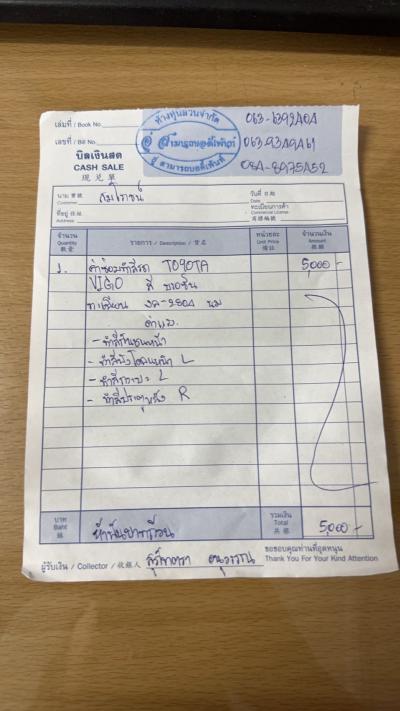 เล่มที่ / Book No.
ห้างหุ้นส่วนจำกัด
063-6392404
เลขที่ / Bill No.
อู่ สามารถบอดี้เพ้นท์
063-9349461
บิลเงินสด
อู่ สามารถบอดี้เพ้นท์
CASH SALE
084-8975452
現兑單
นาม 寶號
Customer
วันที่ 日期
Date
ที่อยู่ 住址
Address
ทะเบียนการค้า
Commercial License
จำนวน
Quantity
數量
รายการ / Description / 貨名
หน่วยละ
Unit Price
จำนวนเงิน
Amount
1.
ค่าซ่อมทำสีรถ TOYOTA
5,000 -
VIGO สี
ทะเบียน
นม
- ทำสีกันชนหน้า
- ทำสีบังโคลนหน้า L
- ทำสี L
- ทำสีประตูหลัง R
บาท
Baht
銖
ห้าพันบาทถ้วน
รวมเงิน
Total
共銖
5,000 -
ผู้รับเงิน / Collector / 收銀人
ขอขอบคุณท่านที่อุดหนุน
Thank You For Your Kind Attention